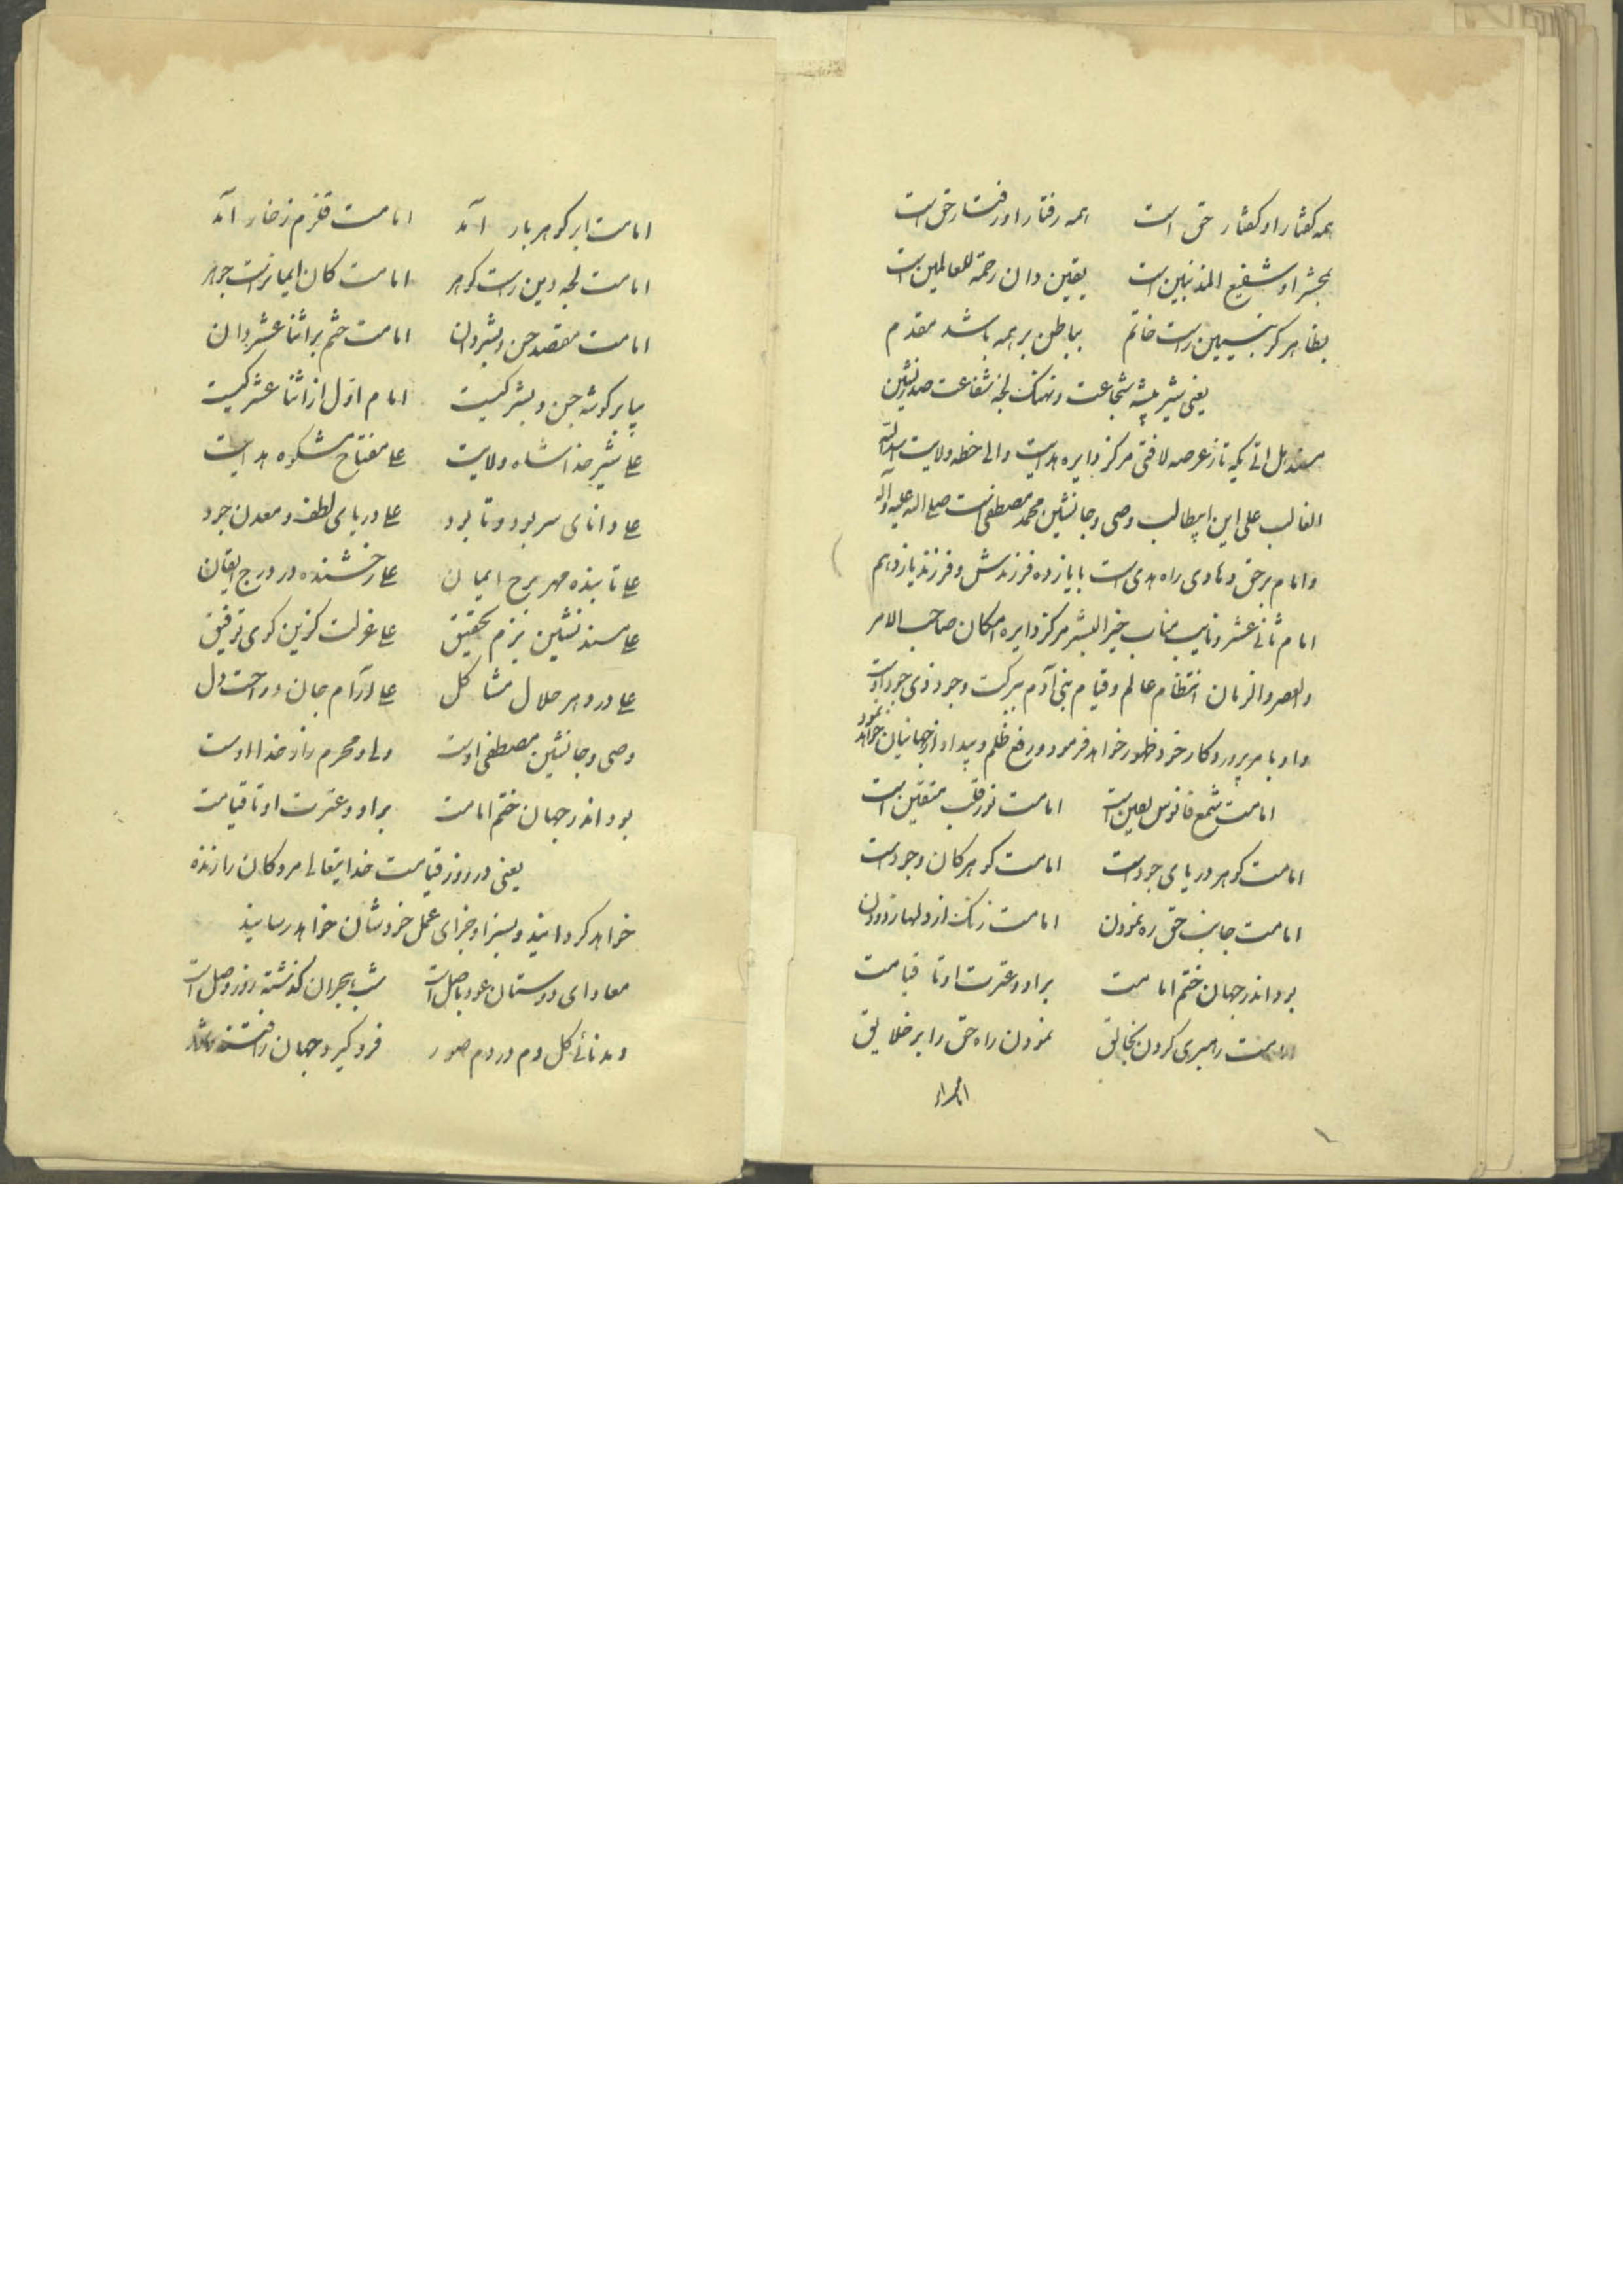 همه گفتار او گفتار حق است همه رفتار او رفتار حق است
بحشر او شفیع المذنبین است یقین دان رحمة للعالمین است
بظاهر گر نبیین راست خاتم بباطن بر همه باشد مقدم
یعنی شیر بیشه شجاعت و نهنک لجه شفاعت صدرنشین
مسند هل اتی یکه تاز عرصه لافتی مرکز دایره هدایت والی خطه ولایت اسدالله
الغالب علی ابن ابیطالب وصی و جانشین محمد مصطفی است صلی الله علیه و آله
و امام برحق و هادی راه هدی است با یازده فرزندش و فرزند یازدهم
امام ثانی عشر و نایب مناب خیر البشر مرکز دایره امکان صاحب الامر
والعصر والزمان انتظام عالم و قیام بنی آدم ببرکت وجود ذی جود اوست
و او بامر پروردکار خود ظهور خواهد فرمود و رفع ظلم و بیداد از جهانیان خواهد نمود
امامت شمع فانوس یقین است امامت نور قلب متقین است
امامت کوهر دریای جود است امامت کوهر کان وجود است
امامت جانب حق ره نمودن امامت زنک از دلها زدودن
بود اندر جهان ختم امامت بر او و عترت او تا قیامت
امامت رهبری کردن بخالق نمودن راه حق را بر خلایق
امامت ابر کوهر بار آمد امامت قلزم زخار آمد
امامت لجه دین راست کوهر امامت کان ایمانراست جوهر
امامت مقصد جن و بشر دان امامت ختم بر اثنا عشر دان
بیا بر کوشه جن و بشر کیست امام اول از اثنا عشر کیست
علی شیر خدا شاه ولایت علی مفتاح مشکوه هدایت
علی دانای سر بود و نابود علی دریای لطف و معدن جود
علی تابنده مهر برج ایمان علی رخشنده در درج ایقان
علی مسند نشین بزم تحقیق علی عزلت کزین کوی توفیق
علی در دهر حلال مشاکل علی آرام جان و راحت دل
وصی و جانشین مصطفی اوست ولی و محرم راز خدا اوست
بود اندر جهان ختم امامت بر او و عترت او تا قیامت
یعنی در روز قیامت خدایتعالی مردکان را زنده
خواهد کردانید و بسزا و جزای عمل خودشان خواهد رسانید
معاد ای دوستان عود باصل است شب هجران کذشته روز وصل است
دمد نائی کل دم در دم صور فرو کیرد جهان را